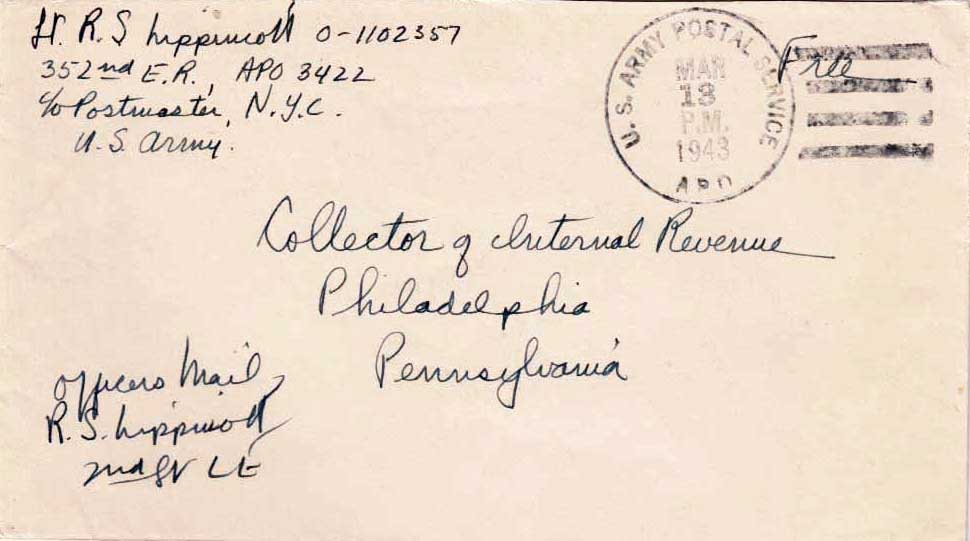 Lt. R. S Lippincott O-1102357
352nd E. R., APO 3422
c/o Postmaster, N.Y.C.
U.S. Army.
U. S. ARMY POSTAL SERVICE
MAR
13
P.M.
1943
APO
Free
Collector of Internal Revenue
Philadelphia
Pennsylvania
Officers Mail
R. S. Lippincott
2nd